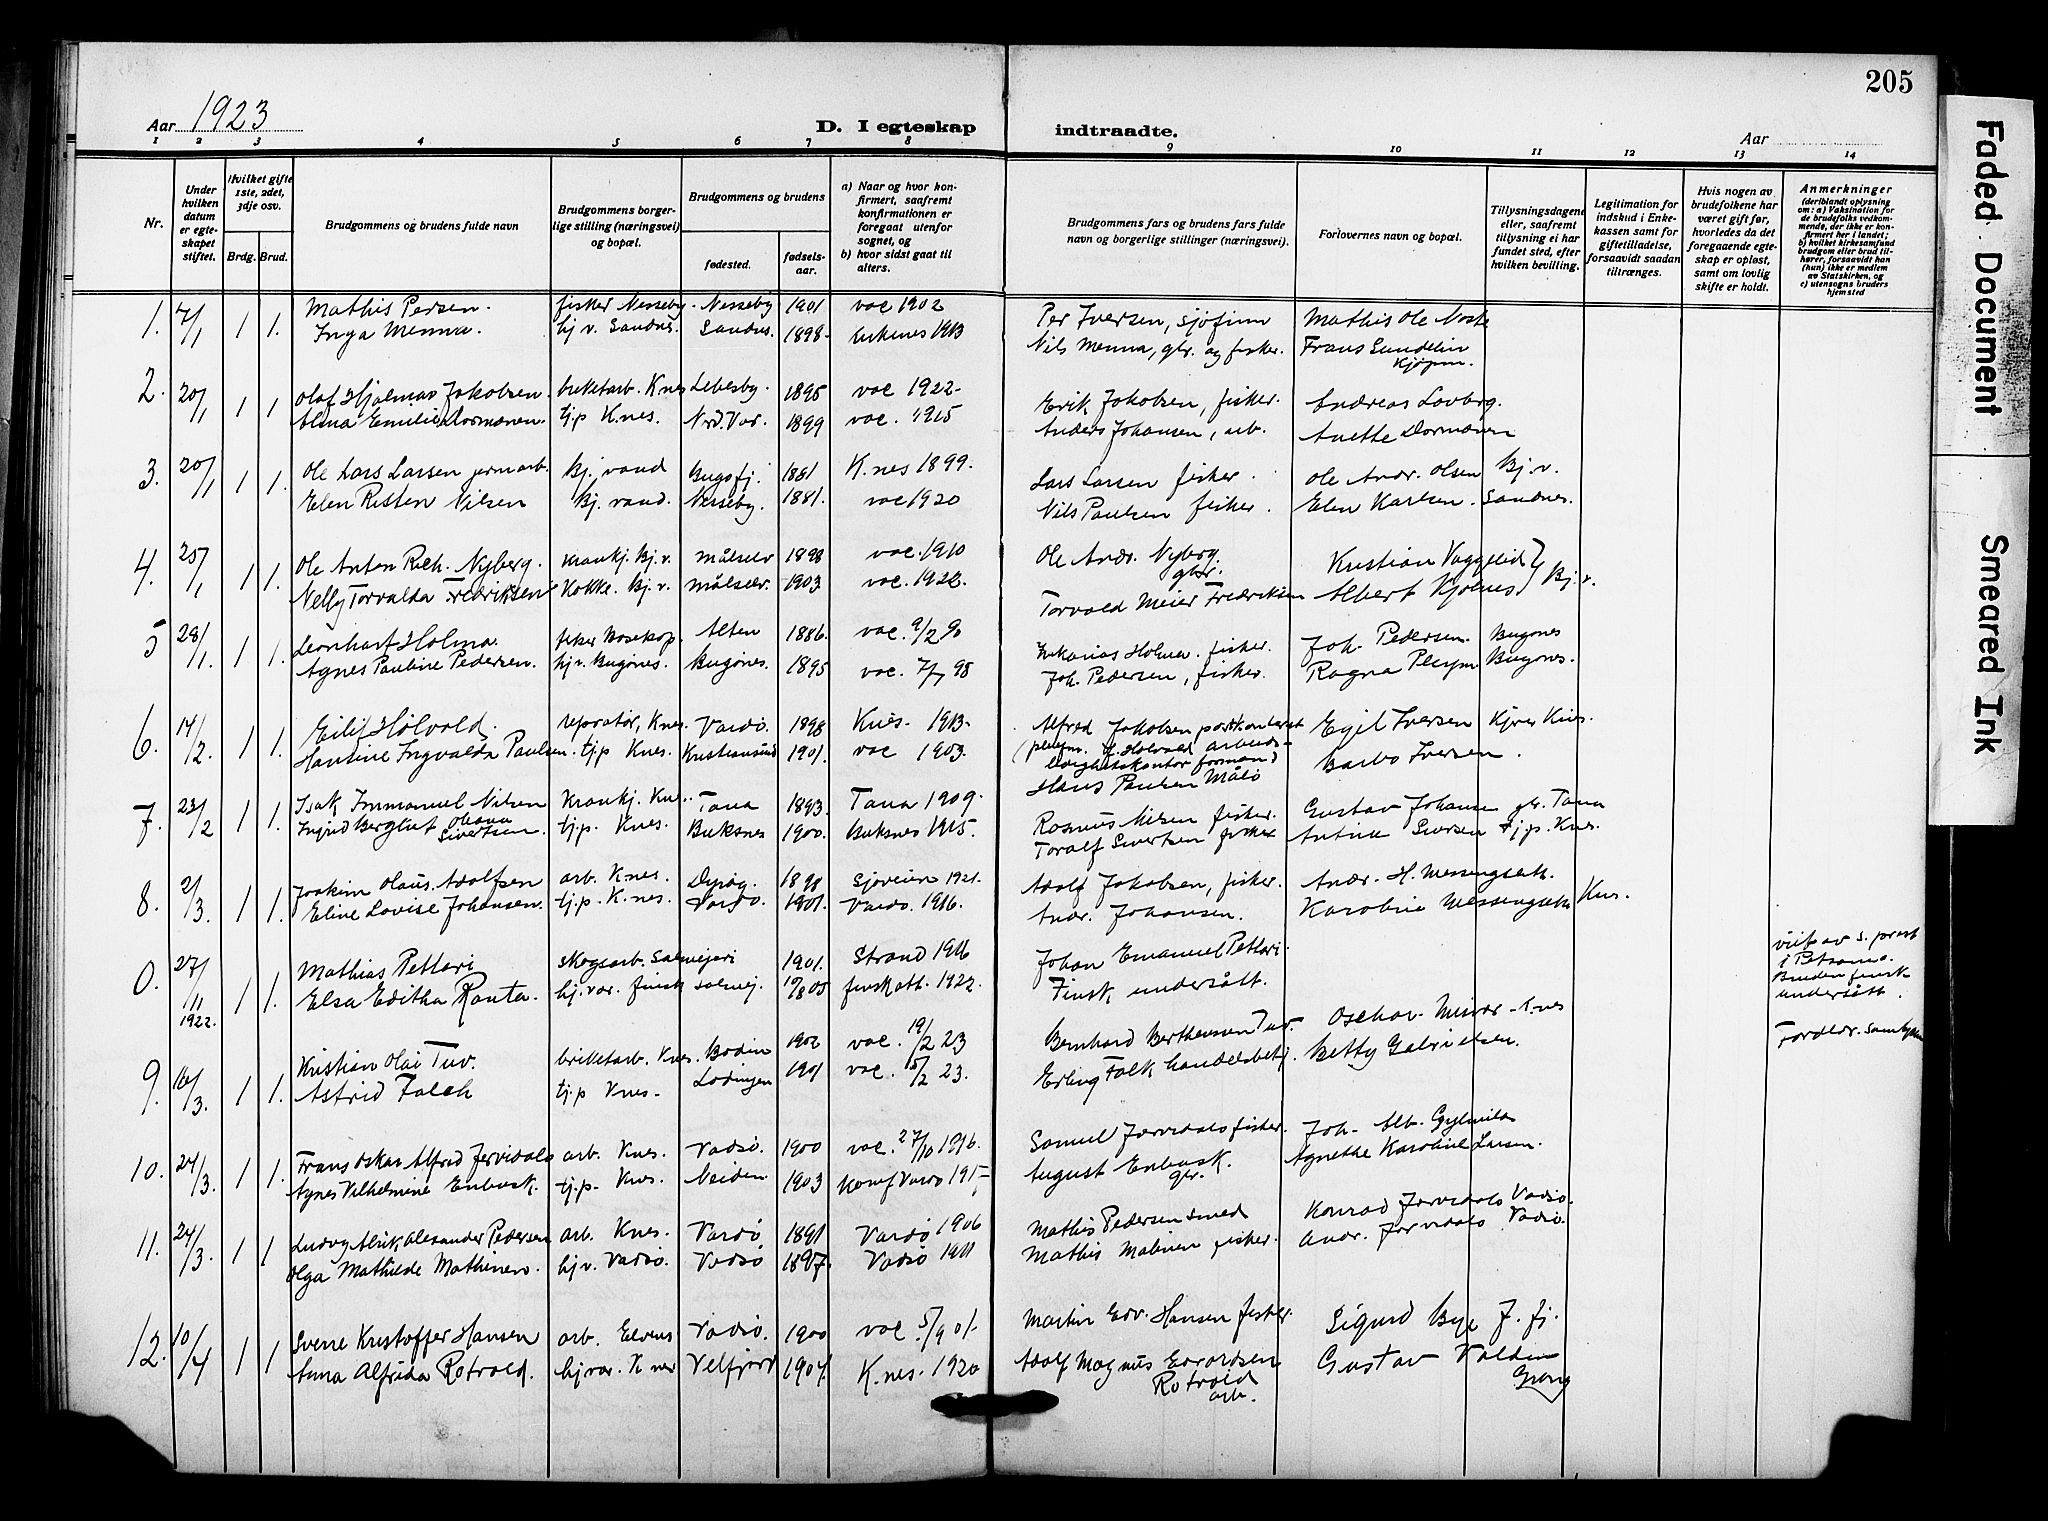 205
Aar 1923
D. I egteskap indtraadte.
Aar
1 2 3 4 5 6 7 8 9 10 11 12 13 14
Nr.
Under hvilken datum er egteskapet stiftet.
Hvilket gifte 1ste, 2det, 3dje osv.
Brdg. Brud.
Brudgommens og brudens fulde navn
Brudgommens borgerlige stilling (næringsvei) og bopæl.
Brudgommens og brudens
fødested.
fødselsaar.
a) Naar og hvor konfirmert, saafremt konfirmationen er foregaat utenfor sognet, og
b) hvor sidst gaat til alters.
Brudgommens fars og brudens fars fulde navn og borgerlige stillinger (næringsvei).
Forlovernes navn og bopæl.
Tillysningsdagene eller, saafremt tillysning ei har fundet sted, efter hvilken bevilling.
Legitimation for indskud i Enkekassen samt for giftetilladelse, forsaavidt saadan tiltrænges.
Hvis nogen av brudefolkene har været gift før, hvorledes da det foregaaende egteskap er opløst, samt om lovlig skifte er holdt.
Anmerkninger (deriblandt oplysning om: a) Vaksination for de brudefolks vedkommende, der ikke er konfirmert her i landet; b) hvilket kirkesamfund brudgom eller brud tilhører, forsaavidt han (hun) ikke er medlem av Statskirken, og c) utensogns bruders hjemsted
1. 7/1 1 1. Mathis Persen. fisker Nesseby. Nesseby 1901 vac 1902 Per Iversen, sjøfinn Mathis Ole Noste
Inga Menna. hj v. Sandnes. Sandnes. 1898. 1913 Nils Menna, gbr. og fisker. Frans Sundelin
Kjøpm.
2. 20/1 1 1 Olaf Hjalmar Jakobsen. Knes Lebesby. 1895 vac 1922 Erik Jakobsen, fisker. Andreas Lovberg.
Alma Emilie Dormænen. tj.p Knes. Nrd. Var. 1899 vac. 1915 Anders Johansen, arb. Anette Dormænen
3. 20/1 1 1. Ole Lars Larsen jernarb. Bj. vand Bugøfj. 1881 K.nes 1899. Lars Larsen fisker. Ole Andr. Olsen Bj. v.
Elen Risten Nilsen Bj. vand. Nesseby. 1881. vac 1920 Nils Paulsen fisker. Elen Karlsen. Sandnes.
4. 25/1 1 1. Ole Anton Rich. Nyberg. Krankj. Bj. v. Målselv 1898 vac. 1910 Ole Andr. Nyberg Kristian Vaggelid
gbr.
Nelly Torvalda Fredriksen Kokke. Bj. v. Målselv. 1903 vac. 1922. Torvald Meier Fredriksen Albert Kjølnes Bj. v.
5 28/1. 1 1. Leonhart Holma. fisker Bosekop. Alten 1886. vac. 9/2 90 Zakarias Holma. fisker. Joh. Pedersen. Bugønes
Agnes Pauline Pedersen. hj v. Bugønes. Bugønes. 1895 vac. 7/7 98 Joh. Pedersen, fisker. Ragna Bugønes.
6. 14/2. 1 1. Eilif Holvold. reparatør, Knes. Vardø. 1898 Knes. 1913. Alfred Jakobsen postkontorist Egil Iversen Knes
Hansine Ingvalda Paulsen. tj.p Knes. Kristiansund 1901. vac 1903. Holvold arbeids-
formand Barbo Iversen.
Hans Paulsen Målø
7. 23/2 1 1. Isak Immanuel Nilsen Krankj. Kn.. Tana 1893 Tana 1909. Rasmus Nilsen fisker. Gustav Johansen gbr. Tana
Ingrid Bergliot Olava
Sivertsen. tj.p. Knes. Buksnes 1900. Buksnes 1915. Toralf Sivertsen fisker tj.p. Knes.
8. 2/3. 1 1. Joakim Olaus Adolfsen arb. K.nes. Dyrøy. 1898 Sjøveien 1921. Adolf Jakobsen, fisker. Andr. H. Messengseth.
Eline Lovise Johansen. tj.p. K.nes. Vardø. 1901. Vardø. 1916. Andr. Johansen. Karoline Messengseth Knes.
0. 27/11 1922. 1 1. Mathias Pettari skogsarb. Salmijarvi 1901. Strand 1916 Johan Emanuel Pettari. viet av s. prest
i Petsamo.
Elsa Editha Ranta. hj. var. finsk salmij. 10/8 05 1922. Finsk undersått. Bruden finsk
undersått.
9. 16/3. 1 1. Kristian Olai Tuv. briketarb. Knes. Bodin 1902 vac. 19/2 23 Bernhard Berthensen Tuv. Oskar K.nes Foreldr. samtykke
Astrid Falch tj.p Knes. Lødingen 1901 vac. 5/2 23. Erling Falk handelsbetj. Betty Gabrielsen.
10. 24/3. 1 1. Frans Oskar Alfred Jervidalo arb. Knes. Vadsø. 1900 vac. 27/10 1916. Samuel Jærvidalo fisker. Joh. Alb.
Agnes Vilhelmine Enbusk. tj.p. Knes. Neiden 1903 Konf Vardø August Enbusk. Agnethe Karoline Larsen.
gbr.
11. 24/3. 1 1 Ludvig Alrik Alexander Pedersen arb. Knes. Vardø 1891 Vardø 1906 Mathis Pedersen smed Konrad Jærvidalo Vadsø.
Olga Mathilde Mathinen. hj v. Vadsø. Vadsø 1897. Vadsø 1911 Mathis Malinen fisker. Andr. Jærvidalo Vadsø.
12. 10/4 1 1 Sverre Kristoffer Hansen arb. Elvenes Vadsø. 1900 vac. 5/9 01. Martin Edv. Hansen fisker. Sigurd Bye J. fj.
Anna Alfrida Rotvold. hj var. Knes Velfjord 1904. K.nes. 1920 Adolf Magnus Edvardsen Gustav Valden
Rotvold
arb. Grong
Faded Document Smeared Ink